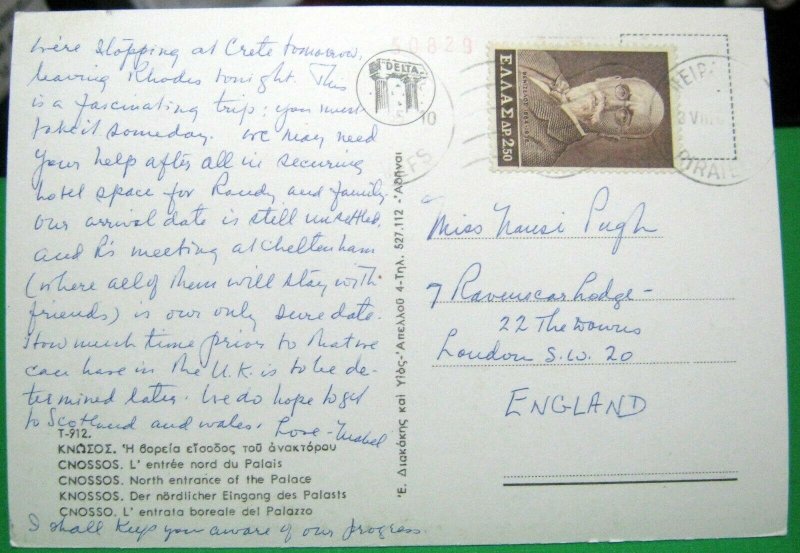 We're stopping at Crete tomorrow,
leaving Rhodes tonight. This
is a fascinating trip; you must
take it someday. We may need
your help after all in securing
hotel space for Randy and family.
Our arrival date is still unsettled,
and R's meeting at Cheltenham
(where all of them will stay with
friends) is our only sure date.
How much time prior to that we
can have in the U.K. is to be de-
termined later. We do hope to get
to Scotland and Wales. Love - Mabel
T-912.
ΚΝΩΣΟΣ. Ἡ βορεία εἴσοδος τοῦ ἀνακτόρου
CNOSSOS. L' entrée nord du Palais
CNOSSOS. North entrance of the Palace
KNOSSOS. Der nördlicher Eingang des Palasts
CNOSSO. L' entrata boreale del Palazzo
I shall keep you aware of our progress.
DELTA
Ἐ. Διακάκης καὶ Υἱὸς-Ἀπελλοῦ 4-Τηλ. 527.112 -Ἀθῆναι
50829
ΕΛΛΑΣ ΔΡ. 2.50
Miss Nansi Pugh
7 Ravenscar Lodge -
22 The Downs
London S.W. 20
ENGLAND